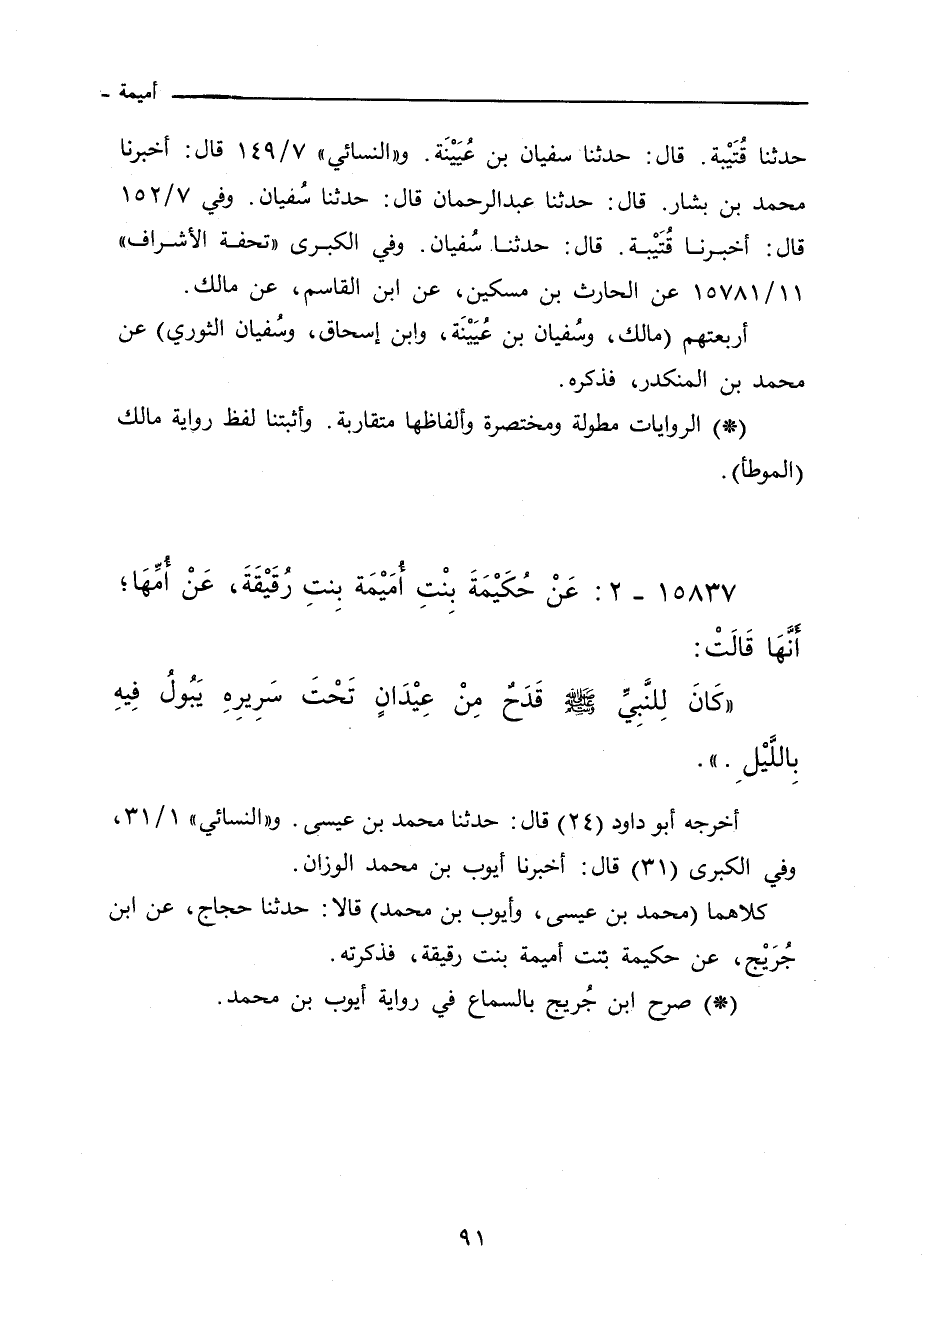 أميمة -
حدثنا قُتَيْبة. قال: حدثنا سفيان بن عُيَيْنَة. و«النسائي» ١٤٩/٧ قال: أخبرنا
محمد بن بشار. قال: حدثنا عبدالرحمان قال: حدثنا سُفيان. وفي ١٥٢/٧
قال: أخبرنا قُتَيْبة. قال: حدثنا سُفيان. وفي الكبرى «تحفة الأشراف»
١٥٧٨١/١١ عن الحارث بن مسكين، عن ابن القاسم، عن مالك.
أربعتهم (مالك، وسُفيان بن عُيَيْنَة، وابن إسحاق، وسُفيان الثوري) عن
محمد بن المنكدر، فذكره.
(*) الروايات مطولة ومختصرة وألفاظها متقاربة. وأثبتنا لفظ رواية مالك
(الموطأ).
١٥٨٣٧ - ٢ : عَنْ حُكَيْمَةَ بِنْتِ أُمَيْمَة بِنتِ رُقَيْقَةَ، عَنْ أُمِّهَا؛
أَنَّهَا قَالَتْ:
«كَانَ لِلنَّبِيِّ ﷺ قَدَحٌ مِنْ عِيْدَانٍ تَحْتَ سَرِيرِهِ يَبُولُ فِيهِ
بِاللَّيْلِ .».
أخرجه أبو داود (٢٤) قال: حدثنا محمد بن عيسى. و«النسائي» ٣١/١،
وفي الكبرى (٣١) قال: أخبرنا أيوب بن محمد الوزان.
كلاهما (محمد بن عيسى، وأيوب بن محمد) قالا: حدثنا حجاج، عن ابن
جُرَيْج، عن حكيمة بنت أميمة بنت رقيقة، فذكرته.
(*) صرح ابن جُريج بالسماع في رواية أيوب بن محمد.
٩١